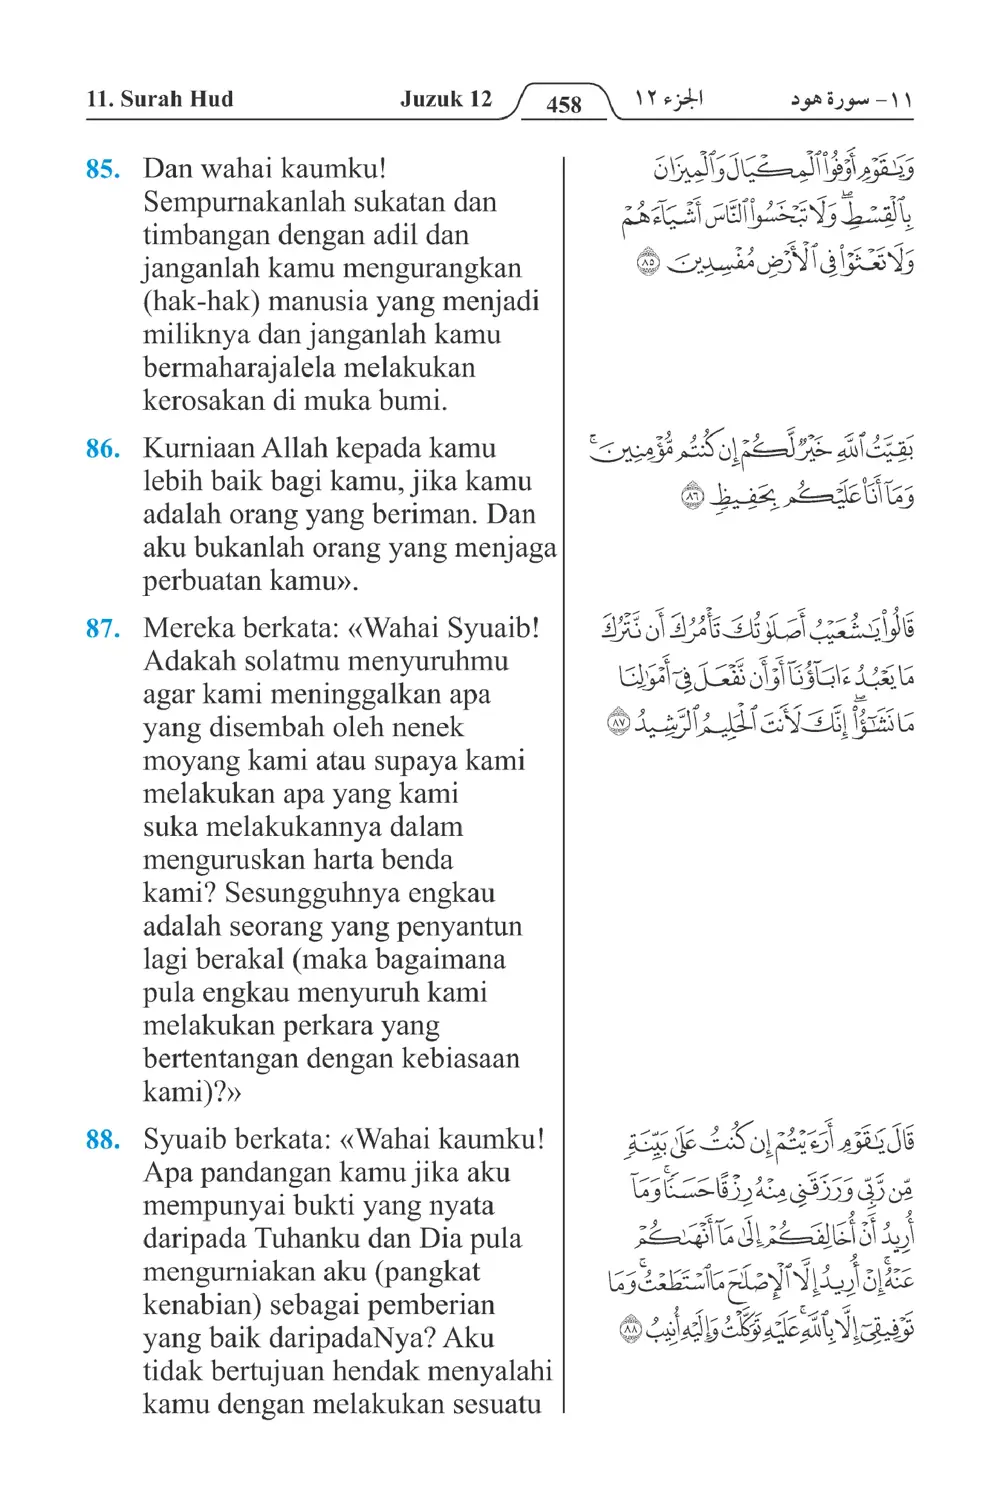 11. Surah Hud
Juzuk 12
458
الجزء ١٢
١١- سورة هود
85. Dan wahai kaumku!
Sempurnakanlah sukatan dan
timbangan dengan adil dan
janganlah kamu mengurangkan
(hak-hak) manusia yang menjadi
miliknya dan janganlah kamu
bermaharajalela melakukan
kerosakan di muka bumi.
وَيَٰقَوْمِ أَوْفُوا۟ ٱلْمِكْيَالَ وَٱلْمِيزَانَ
بِٱلْقِسْطِۖ وَلَا تَبْخَسُوا۟ ٱلنَّاسَ أَشْيَآءَهُمْ
وَلَا تَعْثَوْا۟ فِى ٱلْأَرْضِ مُفْسِدِينَ ٨٥
86. Kurniaan Allah kepada kamu
lebih baik bagi kamu, jika kamu
adalah orang yang beriman. Dan
aku bukanlah orang yang menjaga
perbuatan kamu».
بَقِيَّتُ ٱللَّهِ خَيْرٌ لَّكُمْ إِن كُنتُم مُّؤْمِنِينَۚ
وَمَآ أَنَا۠ عَلَيْكُم بِحَفِيظٍ ٨٦
87. Mereka berkata: «Wahai Syuaib!
Adakah solatmu menyuruhmu
agar kami meninggalkan apa
yang disembah oleh nenek
moyang kami atau supaya kami
melakukan apa yang kami
suka melakukannya dalam
menguruskan harta benda
kami? Sesungguhnya engkau
adalah seorang yang penyantun
lagi berakal (maka bagaimana
pula engkau menyuruh kami
melakukan perkara yang
bertentangan dengan kebiasaan
kami)?»
قَالُوا۟ يَٰشُعَيْبُ أَصَلَوٰتُكَ تَأْمُرُكَ أَن نَّتْرُكَ
مَا يَعْبُدُ ءَابَآؤُنَآ أَوْ أَن نَّفْعَلَ فِىٓ أَمْوَٰلِنَا
مَا نَشَٰٓؤُا۟ۖ إِنَّكَ لَأَنتَ ٱلْحَلِيمُ ٱلرَّشِيدُ ٨٧
88. Syuaib berkata: «Wahai kaumku!
Apa pandangan kamu jika aku
mempunyai bukti yang nyata
daripada Tuhanku dan Dia pula
mengurniakan aku (pangkat
kenabian) sebagai pemberian
yang baik daripadaNya? Aku
tidak bertujuan hendak menyalahi
kamu dengan melakukan sesuatu
قَالَ يَٰقَوْمِ أَرَءَيْتُمْ إِن كُنتُ عَلَىٰ بَيِّنَةٍ
مِّن رَّبِّى وَرَزَقَنِى مِنْهُ رِزْقًا حَسَنًاۚ وَمَآ
أُرِيدُ أَنْ أُخَالِفَكُمْ إِلَىٰ مَآ أَنْهَىٰكُمْ
عَنْهُۚ إِنْ أُرِيدُ إِلَّا ٱلْإِصْلَٰحَ مَا ٱسْتَطَعْتُۚ وَمَا
تَوْفِيقِىٓ إِلَّا بِٱللَّهِۚ عَلَيْهِ تَوَكَّلْتُ وَإِلَيْهِ أُنِيبُ ٨٨